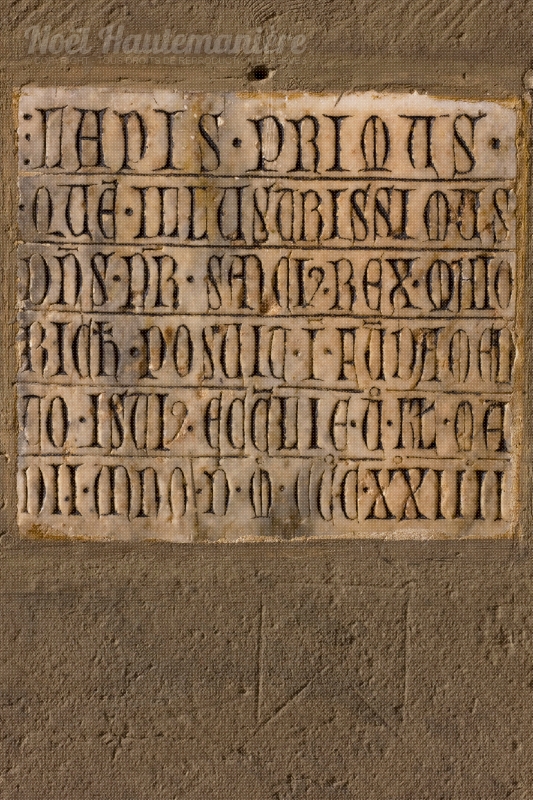 Noël Hautemanière
: LAPIS · PRIMUS ·
QUE · ILLUSTRISSIMUS
DN̄S · N̄R · SANCIꝰ · REX · MAIO
RICH · POSUIT · Ī · FŪDAMEN
TO · ISTIꝰ · ECCL̄IE · KL · MA
DII · ANNO · D · M · CCC · XXIIII